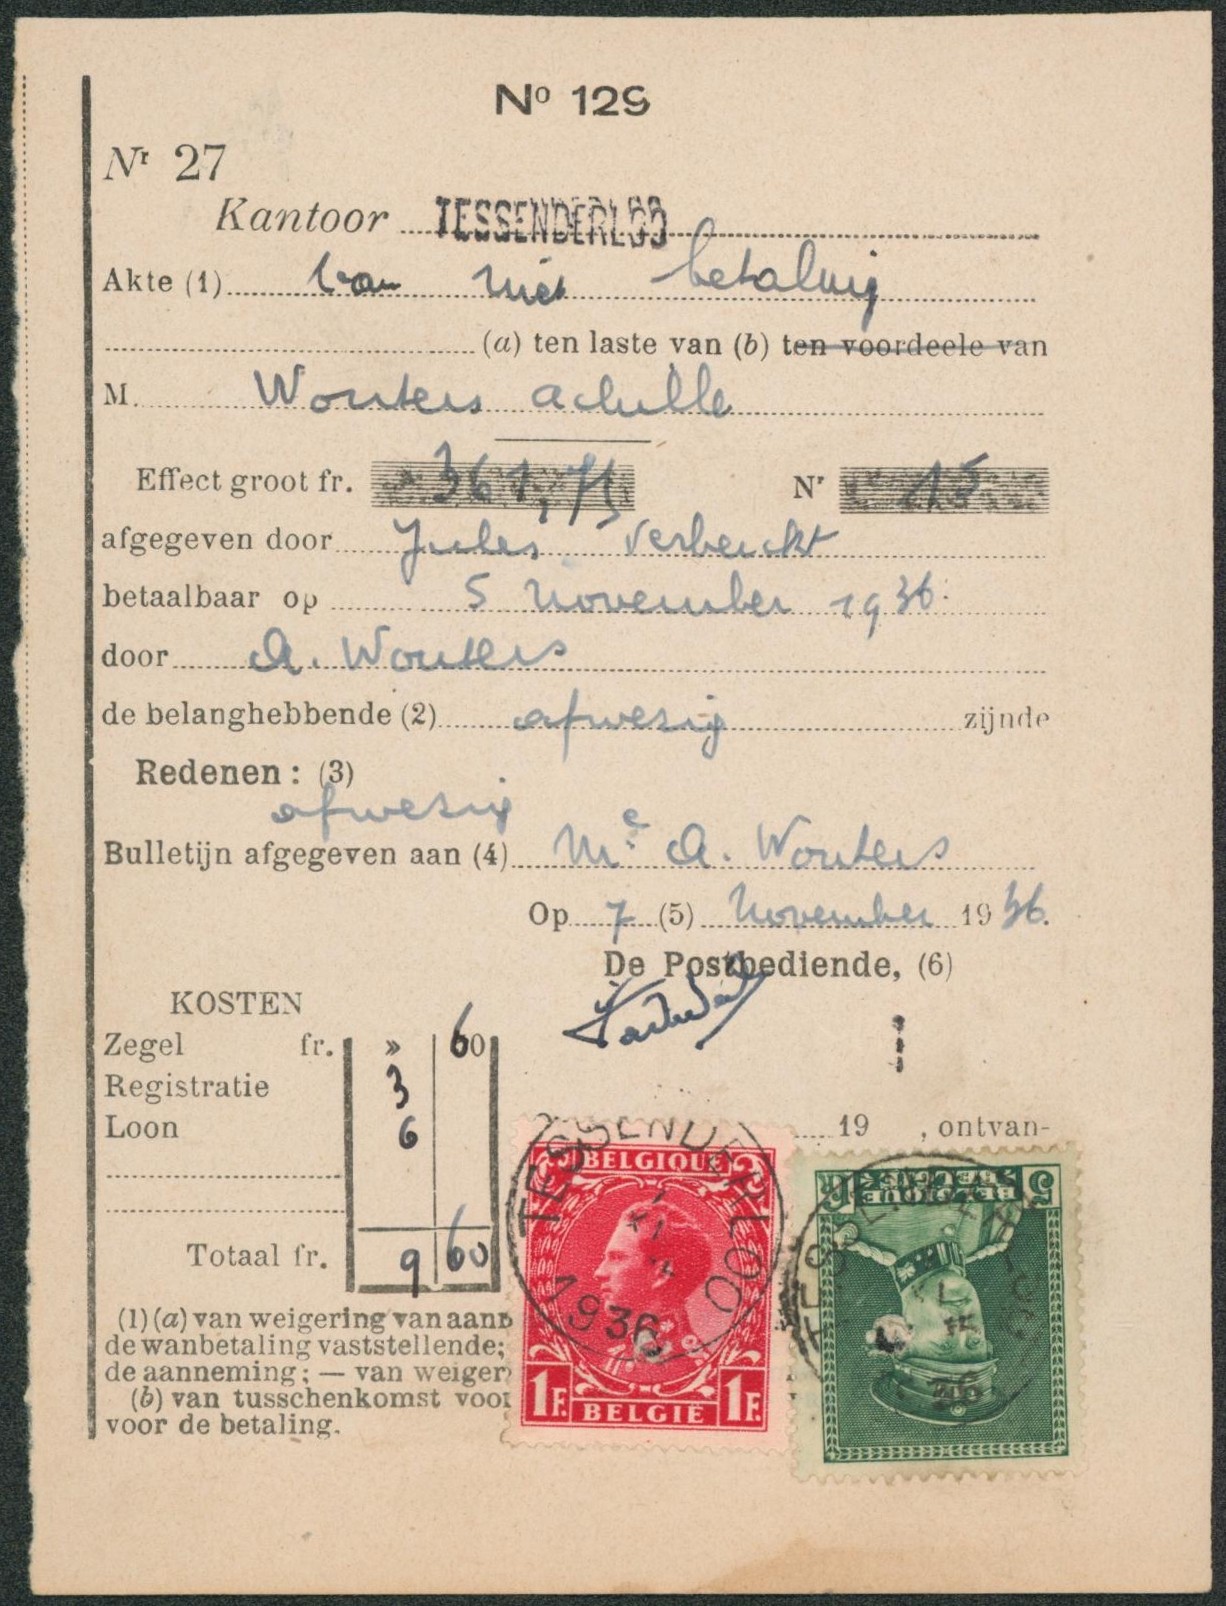 No 129
Nr 27
Kantoor TESSENDERLOO
Akte (1) van niet betaling
(a) ten laste van (b) ten voordeele van
M. Wouters Achille
Effect groot fr. 361,75 Nr 15
afgegeven door Jules Verberckt
betaalbaar op 5 November 1936.
door A. Wouters
de belanghebbende (2) afwezig zijnde
Redenen : (3)
afwezig
Bulletijn afgegeven aan (4) Me A. Wouters
Op 7 (5) November 1936.
De Postbediende, (6)
KOSTEN
Zegel fr. » 60
Registratie 3
Loon 6
19 , ontvan-
Totaal fr. 9 60
(1) (a) van weigering van aann
de wanbetaling vaststellende;
de aanneming; — van weiger
(b) van tusschenkomst voor
voor de betaling.
BELGIQUE
1F. BELGIË 1F.
TESSENDERLOO
1936
5 BELGIQUE BELGIË FR